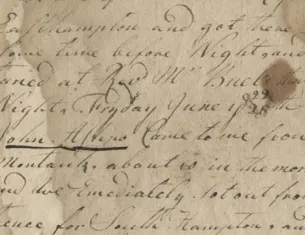 Easthampton and got there
some time before Night, and
taried at Revd Mr Buels that
Night, Fryday June ye
John Come to me from
Montauk, about 10 in the mor
and we Emediately sot out from
thence for South Hampton, and